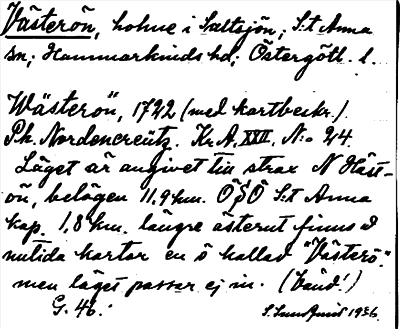 Västerön, holme i Saltsjön, S:t Anna
sn; Hammarkinds hd; Östergötl. l.
"Wästerön", 1722 (med kartbeskr.)
Ph. Nordencreutz. Kr.A. XXII, N:o 24.
Läget är angivet till strax N Häst-
ön, belägen 11,9 km. OSO S:t Anna
kap. 1,8 km. längre österut finns å
nutida kartor en ö kallad "Västerö."
men läget passar ej in. (Sund!)
G. 46.
1936.